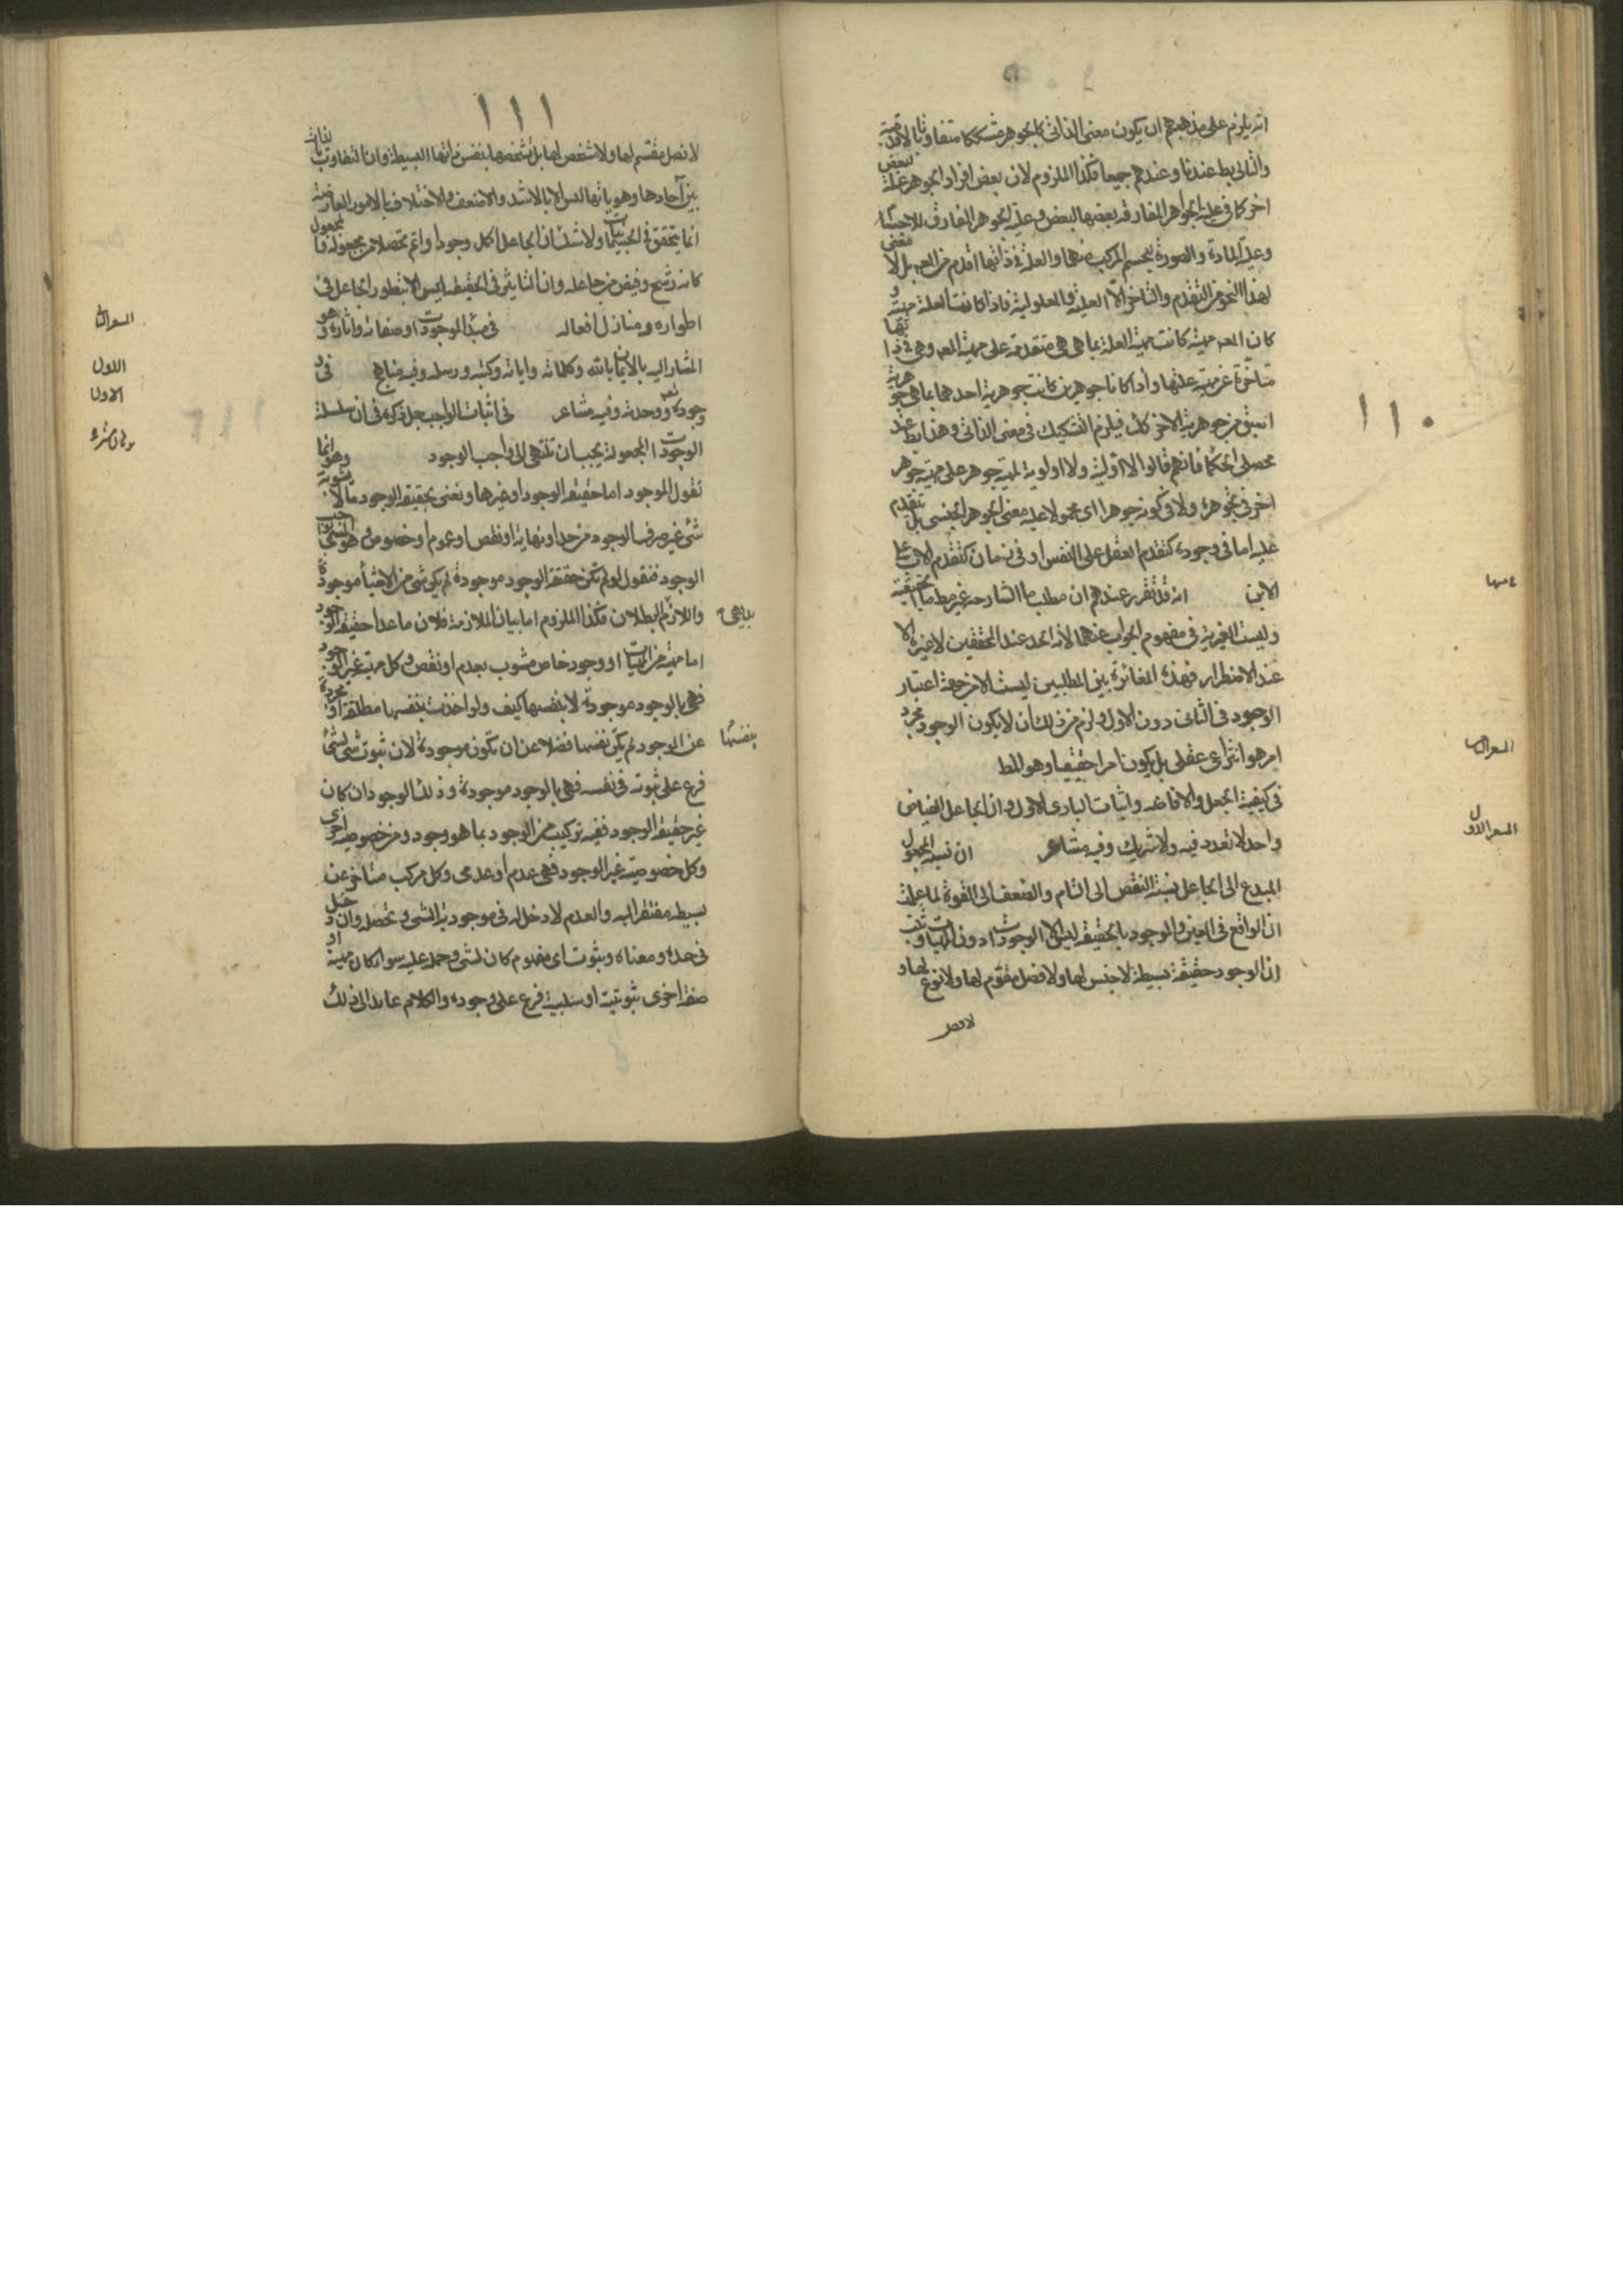 ١١٠
انه يلزم على مذهبهم ان يكون معنى الذاتى كالجوهر مشككا متفاوتا بالاقدمية
والتالى بط عندنا وعندهم جميعا فكذا الملزوم لان بعض افراد الجوهر علة لبعض
اخر كما فى علية الجواهر المفارقه بعضها لبعض وعلية الجوهر المفارق للاجسام
وعلية المادة والصورة للجسم المركب منهما والعلة فى ذاتها اقدم من المعـ بل لا معنى
لهذا النحو من التقدم والتاخر الا العلية والمعلولية فاذا كانت العلة مهية و
كان المعـ مهية كانت مهية العلة بما هى هى متقدمة على مهية المعـ وهى فى ذاتها
متاخرة عن مهية علتها واذا كانا جوهرين كانت جوهرية احدهما بما هى جوهرية
اسبق من جوهرية الاخر كك فيلزم التشكيك فى معنى الذاتى وهذا بط عند
محصلى الحكما فانهم قالوا لا اولية ولا اولوية لمهية جوهر على مهية جوهر
اخر فى تجوهره ولا فى كونه جوهرا اى محمولا عليه معنى الجوهر الجنسى بل تتقدم
عليه اما فى وجوده كتقدم العقل على النفس او فى زمان كتقدم الاب على
الابن انه قد تقرر عندهم ان مطلب ما الشارحة غير مطـ ما الحقيقية
وليست الغيرية فى مفهوم الجواب عنهما لانه الحد عند المحققين لا غيره الا
عند الاضطرار فهذه المغائرة بين المطلبين ليست الا من جهة اعتبار
الوجود فى الثانى دون الاول ولزم من ذلك ان لا يكون الوجود مجرد
امر هو انتزاعى عقلى بل يكون امرا حقيقيا وهو المط
المشعر الثامن
فى كيفية الجعل والافاضه واثبات البارى الاول وان الجاعل الفياض
واحد لا تعدد فيه ولا شريك وفيه مشاعر ان نسبة المجعول
المشعر الاول
المبدع الى الجاعل نسبة النقص الى التام والضعف الى القوة لما علمت
ان الواقع فى العين والموجود بالحقيقه ليس الا الوجودات دون المهيات وثبت
ان الوجود حقيقة بسيطة لا جنس لها ولا فصل مقوم لها ولا نوع لها و
لا فصل
١١١
لا فصل مقسم لها ولا تشخص لها بل تشخصها بنفس ذاتها البسيطة وان التفاوت بالذات
بين آحادها وهوياتها ليس الا بالاشد والاضعف والاختلاف بالامور العارضة
انما يتحقق فى الجسمانيات ولا شك ان الجاعل اكمل وجودا واتم تحصلا من مجعوله فالمجعول
كانه رشح وفيض من جاعله وان التاثير فى الحقيقه ليس الا بتطور الجاعل فى
اطواره ومنازل افعاله فى مبدا الموجودات وصفاته واثاره وهو
المشار اليه بالايمان بالله وكلماته واياته وكتبه ورسله وفيه مناهج فى
الاول
وجوده تعـ ووحدته وفيه مشاعر فى اثبات الواجب جل ذكره فى ان سلسلة
الاول
الوجودات المجعولة يجب ان تنتهى الى واجب الوجود وهو انما
نقول الموجود اما حقيقه الوجود او غيرها ونعنى بحقيقة الوجود ما لا يشوبه
شئ غير صرف الوجود من حد او نهاية او نقص او عموم او خصوص وهو المسمى بواجب
الوجود فنقول لو لم تكن حقيقة الوجود موجودة لم يكن شئ من الاشياء موجودة
واللازم بديهى البطلان فكذا الملزوم اما بيان الملازمة فلان ما عدا حقيقه الوجود
اما مهية من المهيات او وجود خاص مشوب بعدم او نقص وكل مهية غير الوجود
فهى بالوجود موجودة لا بنفسها كيف ولو اخذت بنفسها مطلقة او مجردة
عن الوجود لم يكن نفسها بنفسها فضلا عن ان تكون موجودة لان ثبوت شئ لشئ
فرع على ثبوته فى نفسه فهى بالوجود موجودة وذلك الوجود ان كان
غير حقيقه الوجود ففيه تركيب من الوجود بما هو وجود ومن خصوصية اخرى
وكل خصوصية غير الوجود فهى عدم او عدمى وكل مركب متاخر عن
بسيطه مفتقر اليه والعدم لا دخل له فى موجودية الشى وتحصله وان دخل
فى حده ومعناه وثبوت اى مفهوم كان لشى وحمله عليه سواء كان مهية او
صفة اخرى ثبوتية او سلبية فرع على وجوده والكلام عايد الى ذلك